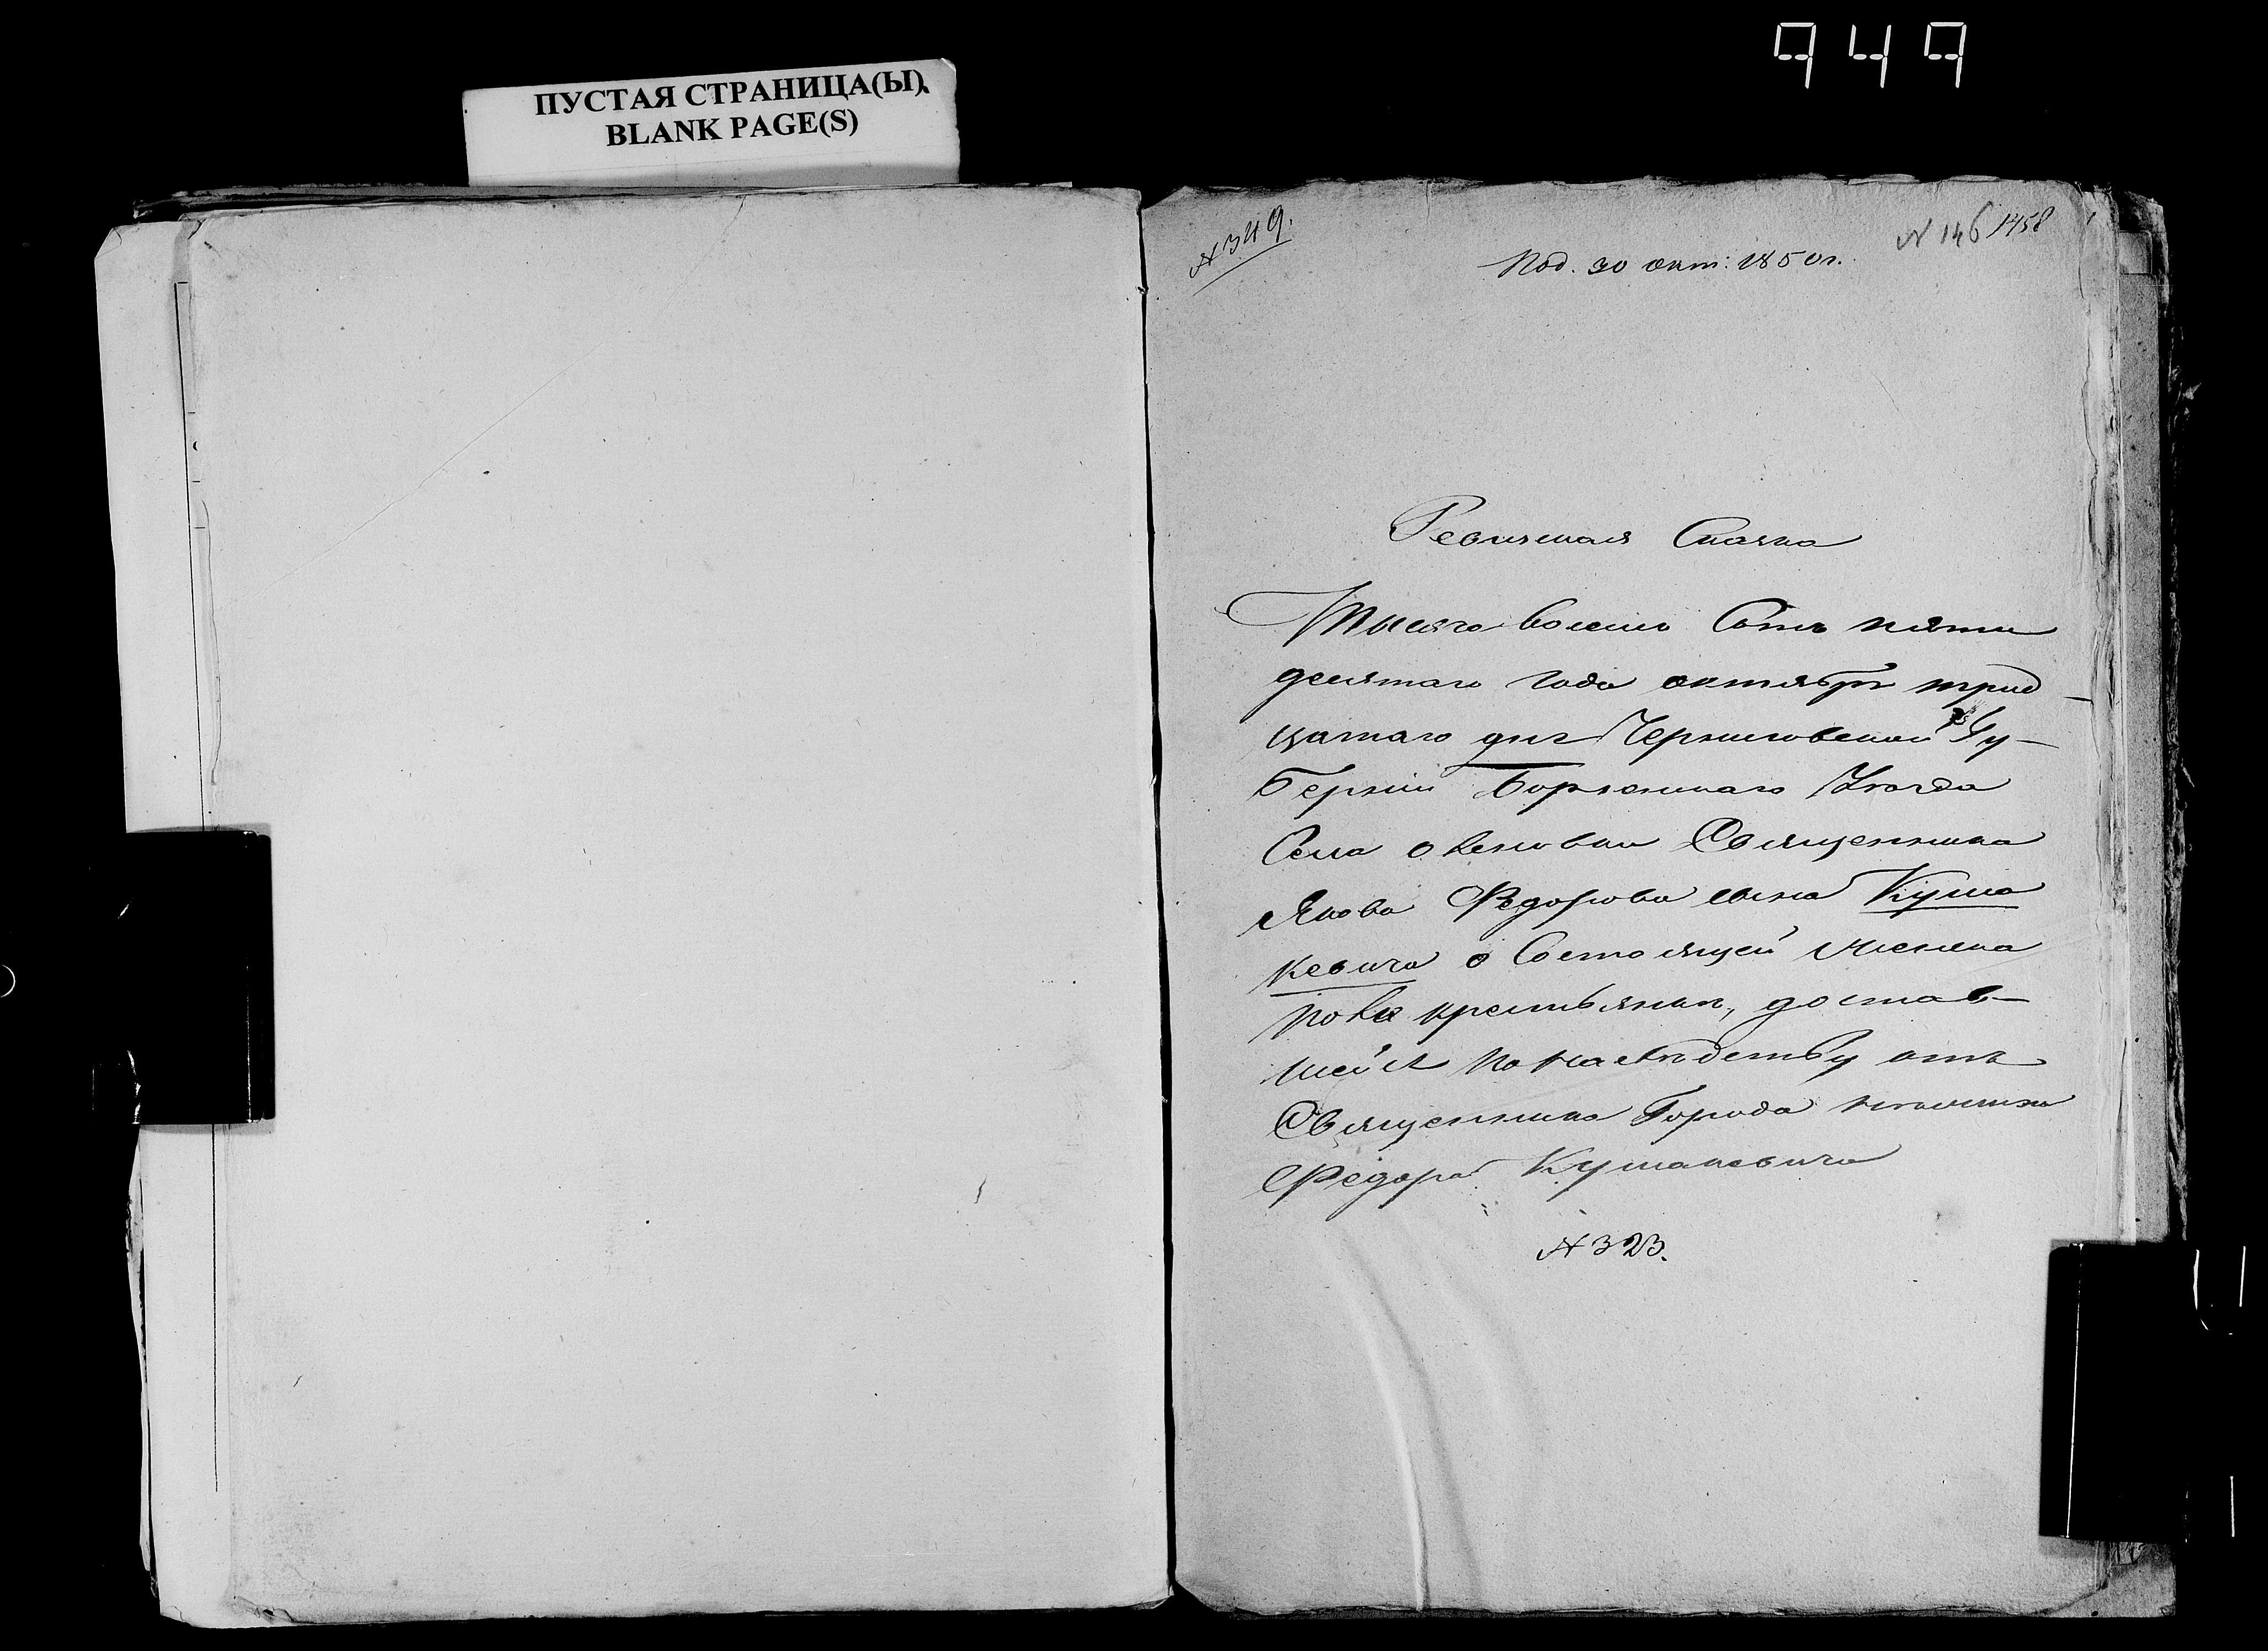 949
ПУСТАЯ СТРАНИЦА(Ы)
BLANK PAGE(S)
№ 349.
№ 146 1458
Под. 30 окт: 1850 г.
Ревизская Сказка
Тысяча восемь Сотъ пяти
десятаго года октября трид
цатаго дня Черниговской Гу-
берніи Борзенскаго Уѣзда
Села
Священника
Якова Федорова сына Кума
кевича о Состоящей
крестьянки, достав-
шейся по наслѣдству отъ
Священника Города
Федора Кушакевича
№ 323.